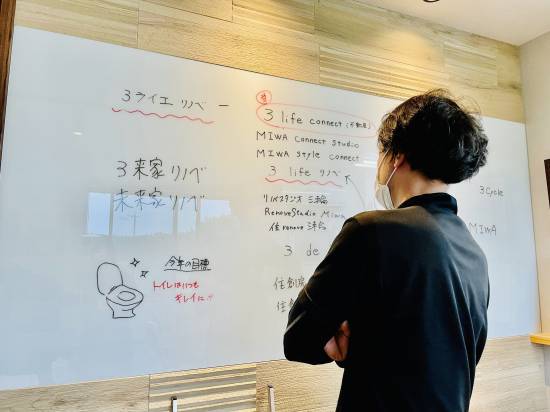 3ライエ リノベー
3来家リノベ
未来家リノベ
今年の目標
トイレはいつも
キレイに!!
3 life connect (不動産)
MIWA connect studio
MIWA style connect
3 life リノベ
リノベスタジオ 三輪
RenoveStudio Miwa
住renove 三輪
3 de
住創
住創
3 cycle
MIWA